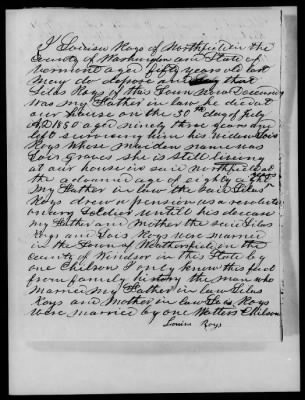 I Louisa Keys of Northfield in the
County of Washington and State of
Vermont aged fifty years old last
May do depose and say that
Silas Keys of this Town now Deceased
was my Father in law he died at
our house on the 30th day of July
AD 1850 aged ninety three years and
left surviving him his widow Lois
Keys whose maiden name was
Lois Graves she is still living
at our house in said Northfield at
the advanced age of eighty eight years
My Father in law the said Silas
Keys drew a pension as a revolution
ary Soldier untill his decease
my Father and Mother the said Silas
Keys and Lois Keys were married
in the Town of Weathersfield in the
county of Windsor in this State by
one Chilson I only know this fact
from family history the man who
married my Father in law Silas
Keys and Mother in law Lois Keys
were married by one Waters Chilson
Louisa Keys